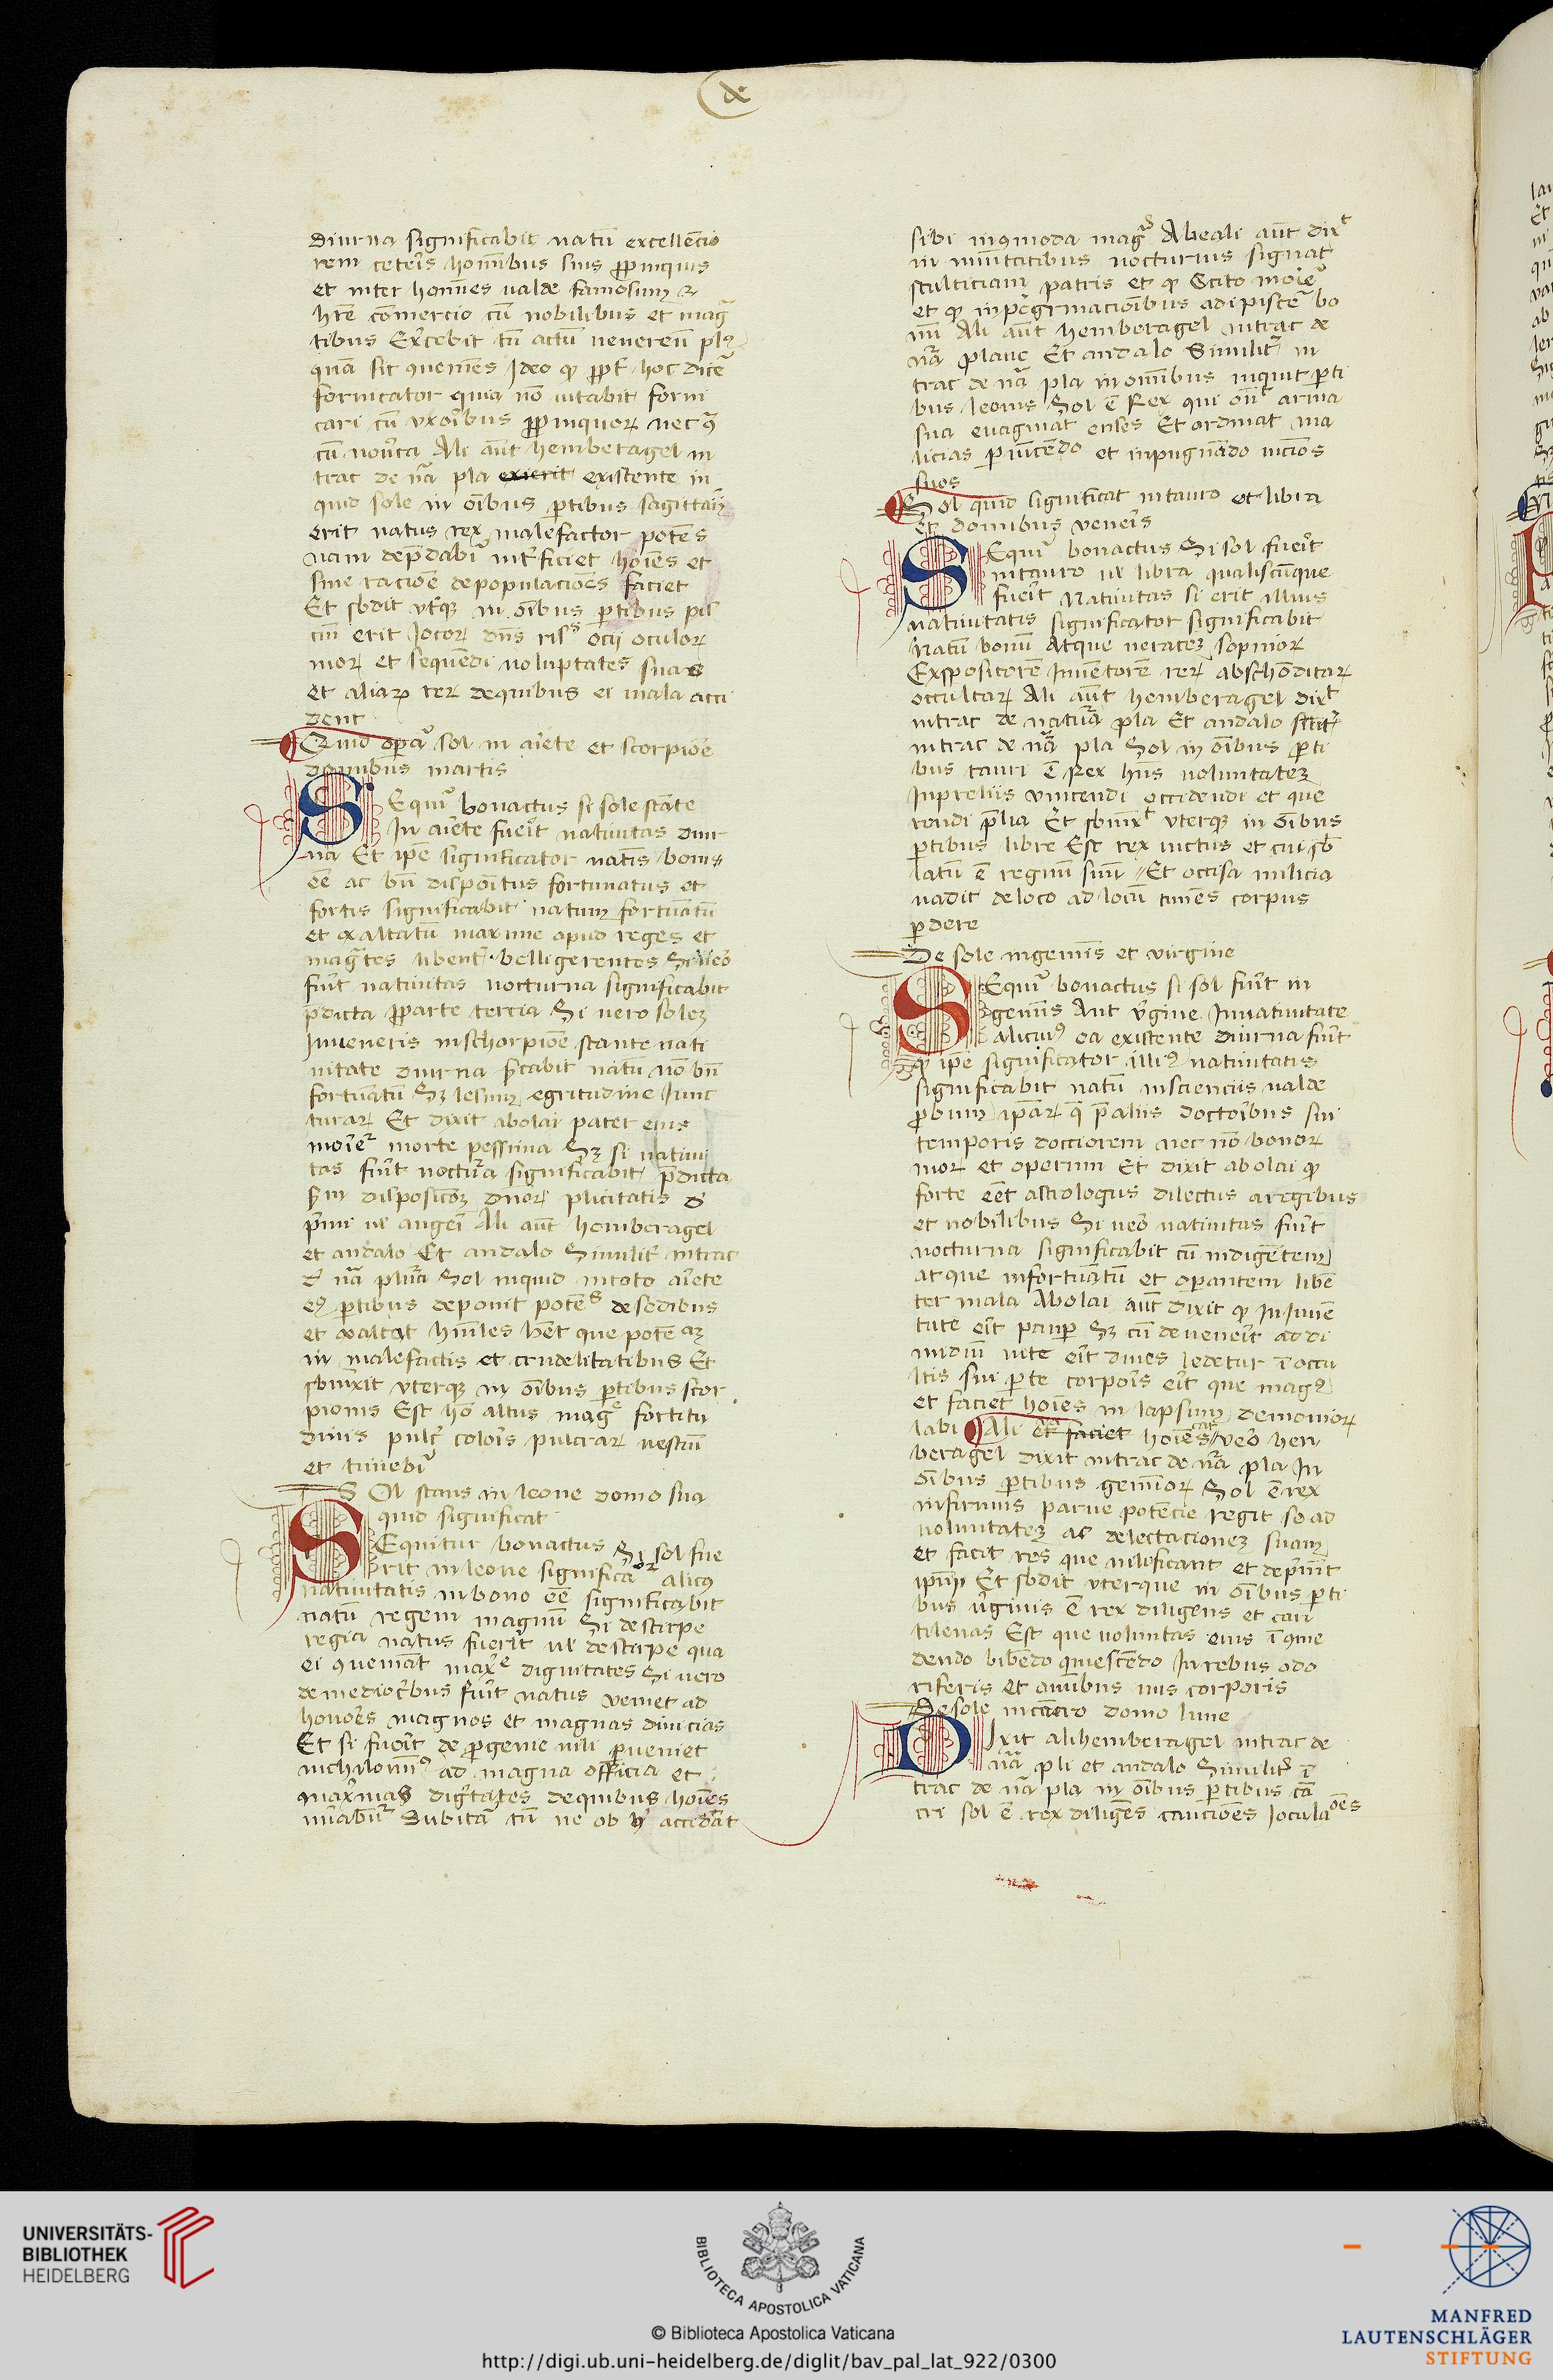 &
diurna significabit natū excellēcio
rem ceteris hominibus suis propinquis
et inter homines ualde famosum
hrē cōmercio cū nobilibus et mag
tibus Exercebit tn̄ actū venereū pl9
quā sit queniēs Ideo hoc
fornicator quia nō uitabit forni
cari cū vxoribus propinquor nec
cū nouerca Ali aūt hemberagel in
trac de nā pla exierit existente in
quid sole in oībus partibus sagittarij
erit natus rex malefactor potēs
nam depdabit interficiet hoīes et
sine racione depopulaciones faciet
Et sbdit vterque in oībus partibus pis
ciū erit Iocor dns ocij oculor
mor et sequendi voluptates suas
et aliar rer de quibus ei mala acci
dent
Quid operat sol in ariete et scorpione
domibus martis
SEquit bonactus si sole stāte
In ariete fuerit natiuitas diur
na Et ipē significator natis bonis
ēe ac bn̄ disponitus fortunatus et
fortis significabit natum fortunatū
et exaltatū maxime apud reges et
mag̃tes libent belligerentes Si uero
fūit natiuitas nocturna significabit
p̄dicta pro parte tercia Si uero solez
Inueneris in schorpione stante nati
uitate diurna significabit natū nō bn̄
fortunatū Sz lesum egritudine Iunc
turar Et dixit abolai pater eius
moriet morte pessima Sz si natiui
tas fūit nocturna significabit p̄dicta
Sm disposiciōz duor plicitatis
primi uel angeri Ali aūt hemberagel
et andalo Et andalo Similit intrac
nā Sol inquid in toto ariete
partibus deponit potēs de sedibus
et exaltat hūiles
in malefactis et crudelitatibus Et
vterque in oībus partibus scor
pionis Est hō altus mag fortitu
dinis pulcri coloris pulcrar uestiū
et timebit
SOl stans in leone domo sua
quid significat
SEquitur bonactus Si sol fue
rit in leone significator alicuius
natiuitatis in bono ēe significabit
natū regem magnū Si de stirpe
regia natus fuerit uel de stirpe qua
ei queniāt maxime dignitates Si uero
de mediocribus fūit natus veniet ad
honores magnos et magnas diuicias
Et si fuerit de progenie uili perueniet
nichilomin9 ad magna officia et
maximas dignitates de quibus hoīes
mirabunt Dubitā tn̄ ne ob hoc accidāt
sibi incōmoda magna Abeali aūt dixt
in nocturnis signat
stulticiam patris et scito moriet
et in peregrinacionibus adipiscet bo
nū Ali aūt hemberagel intrac de
nā plane Et andalo Similit in
trac de nā pla in omnibus inquit parti
bus leonis Sol ē Rex qui om̄ arma
sua euaginat enses Et ordinat ma
licias peruincendo et inpugnando inicios
suos
Sol quid significat in tauro et libra
et domibus veneris
SEquit bonactus Si sol fuerit
in tauro uel libra qualiscunque
fuerit Natiuitas si erit illius
natiuitatis significator significabit
natū bonū Atque ueracez sopnior
Expositorē Inuentorē rer abschonditar
occultar Ali aūt hemberagel dixt
intrac de natura pla Et andalo
intrac de nā pla Sol in oībus parti
bus tauri ē Rex hns voluntatez
In preliis vincendi occidendi et que
rendi prelia Et vterque in oībus
partibus libre Est rex uictus et cui sb
latū ē regnū suū Et occisa milicia
uadit de loco ad locū timēs corpus
perdere
De sole in geminis et virgine
SEquit bonactus si sol fūit in
geminis Aut virgine In natiuitate
alicui9 ea existente diurna fūit
ipē significator illi9 natiuitatis
significabit natū in sciencijs ualde
probum ipar p̄ aliis doctoribus sui
temporis docciorem nec nō bonor
mor et operum Et dixit abolai
forte eēt astrologus dilectus a regibus
et nobilibus Si uero natiuitas fūit
nocturna significabit eū indigētem
atque infortunatū et operantem liben
ter mala Abolai aūt dixit In Iuuen
tute erit pauper Sz cū deuenerit ad di
midiū uite erit diues ledetur ī occu
ltis sui parte corporis erit que mag9
et faciet hoīes in lapsum demonior
labi Ali et faciet hoīes uero hen
beragel dixit intrac de nā pla In
oībus partibus geminor Sol ē rex
infirmus parue potencie regit se ad
uoluntatez ac delectacionez suam
et facit res que uilificant et deprimūt
ipm Et sbdit vterque in oībus parti
bus uirginis ē rex diligens et can
tilenas Est que uoluntas eius ī come
dendo bibendo quiescendo In rebus odo
riferis et corporis
De sole in cancro domo lune
DIxit ali hemberagel intrac de
nā pli et andalo Similit ī
trac de nā pla in oībus partibus cā
cri sol ē rex diligēs canciones Ioculaōes
UNIVERSITÄTS-
BIBLIOTHEK
HEIDELBERG
BIBLIOTECA APOSTOLICA VATICANA
© Biblioteca Apostolica Vaticana
http://digi.ub.uni-heidelberg.de/diglit/bav_pal_lat_922/0300
MANFRED
LAUTENSCHLÄGER
STIFTUNG